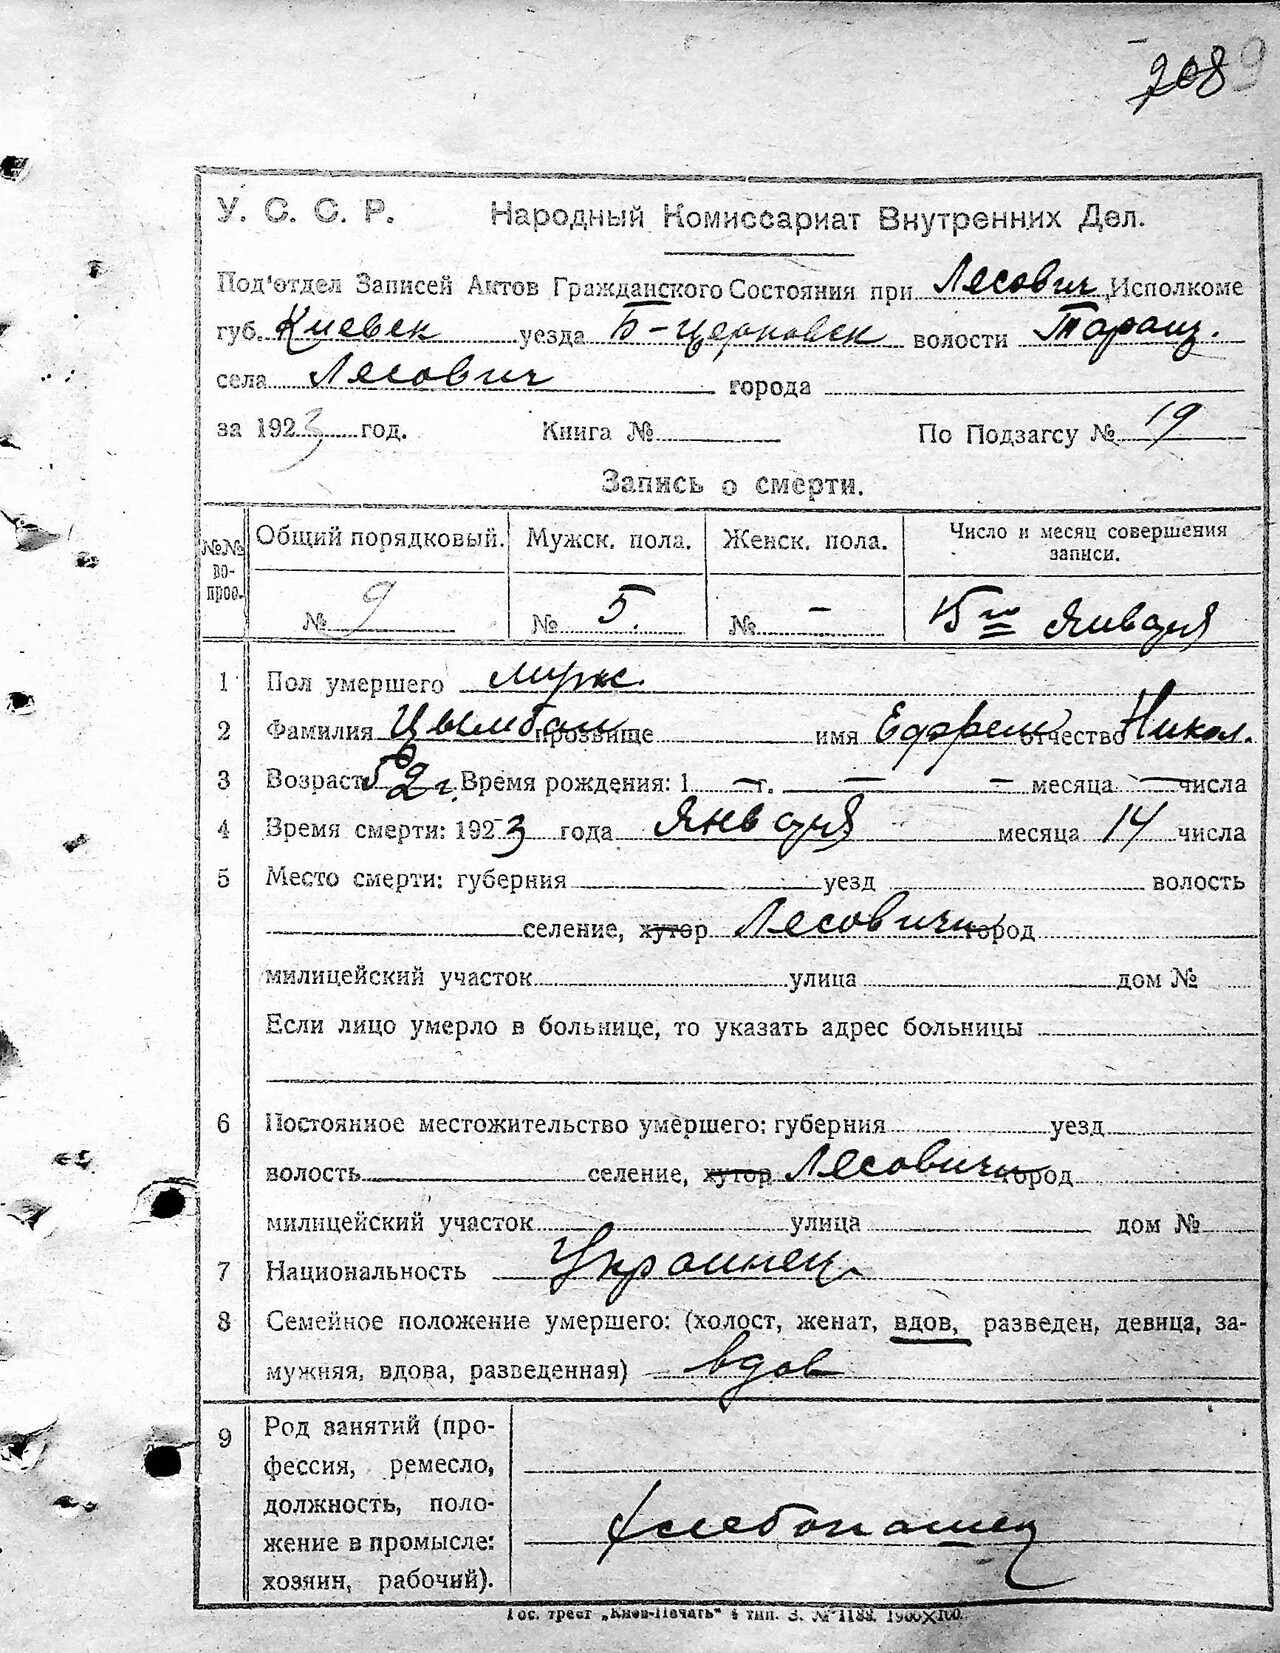 2089
У. С. С. Р. Народный Комиссариат Внутренних Дел.
Под'отдел Записей Актов Гражданского Состояния при Лесович. Исполкоме
губ. Киевск уезда Б-церковск волости Таращ.
села Лесович города
за 1923 год. Книга № По Подзагсу № 19
Запись о смерти.
№№ вопрос. Общий порядковый. Мужск. пола. Женск. пола. Число и месяц совершения записи.
№ 9 № 5. № - 15го Января
1 Пол умершего мужс.
2 Фамилия Цымбал прозвище имя Ефрем отчество Никол.
3 Возраст 52 г. Время рождения: 1 — г. — — месяца — числа
4 Время смерти: 1923 года Января месяца 14 числа
5 Место смерти: губерния уезд волость
селение, хутор Лесовичи город
милицейский участок улица дом №
Если лицо умерло в больнице, то указать адрес больницы
6 Постоянное местожительство умершего: губерния уезд
волость селение, хутор Лесовичи город
милицейский участок улица дом №
7 Национальность Украинец
8 Семейное положение умершего: (холост, женат, вдов, разведен, девица, за-
мужняя, вдова, разведенная) вдов
9 Род занятий (про-
фессия, ремесло,
должность, поло-
жение в промысле:
хозяин, рабочий).
хлебопашец
Гос. трест „Киев-Печать" 4 тип. З. № 1188. 1900×100.